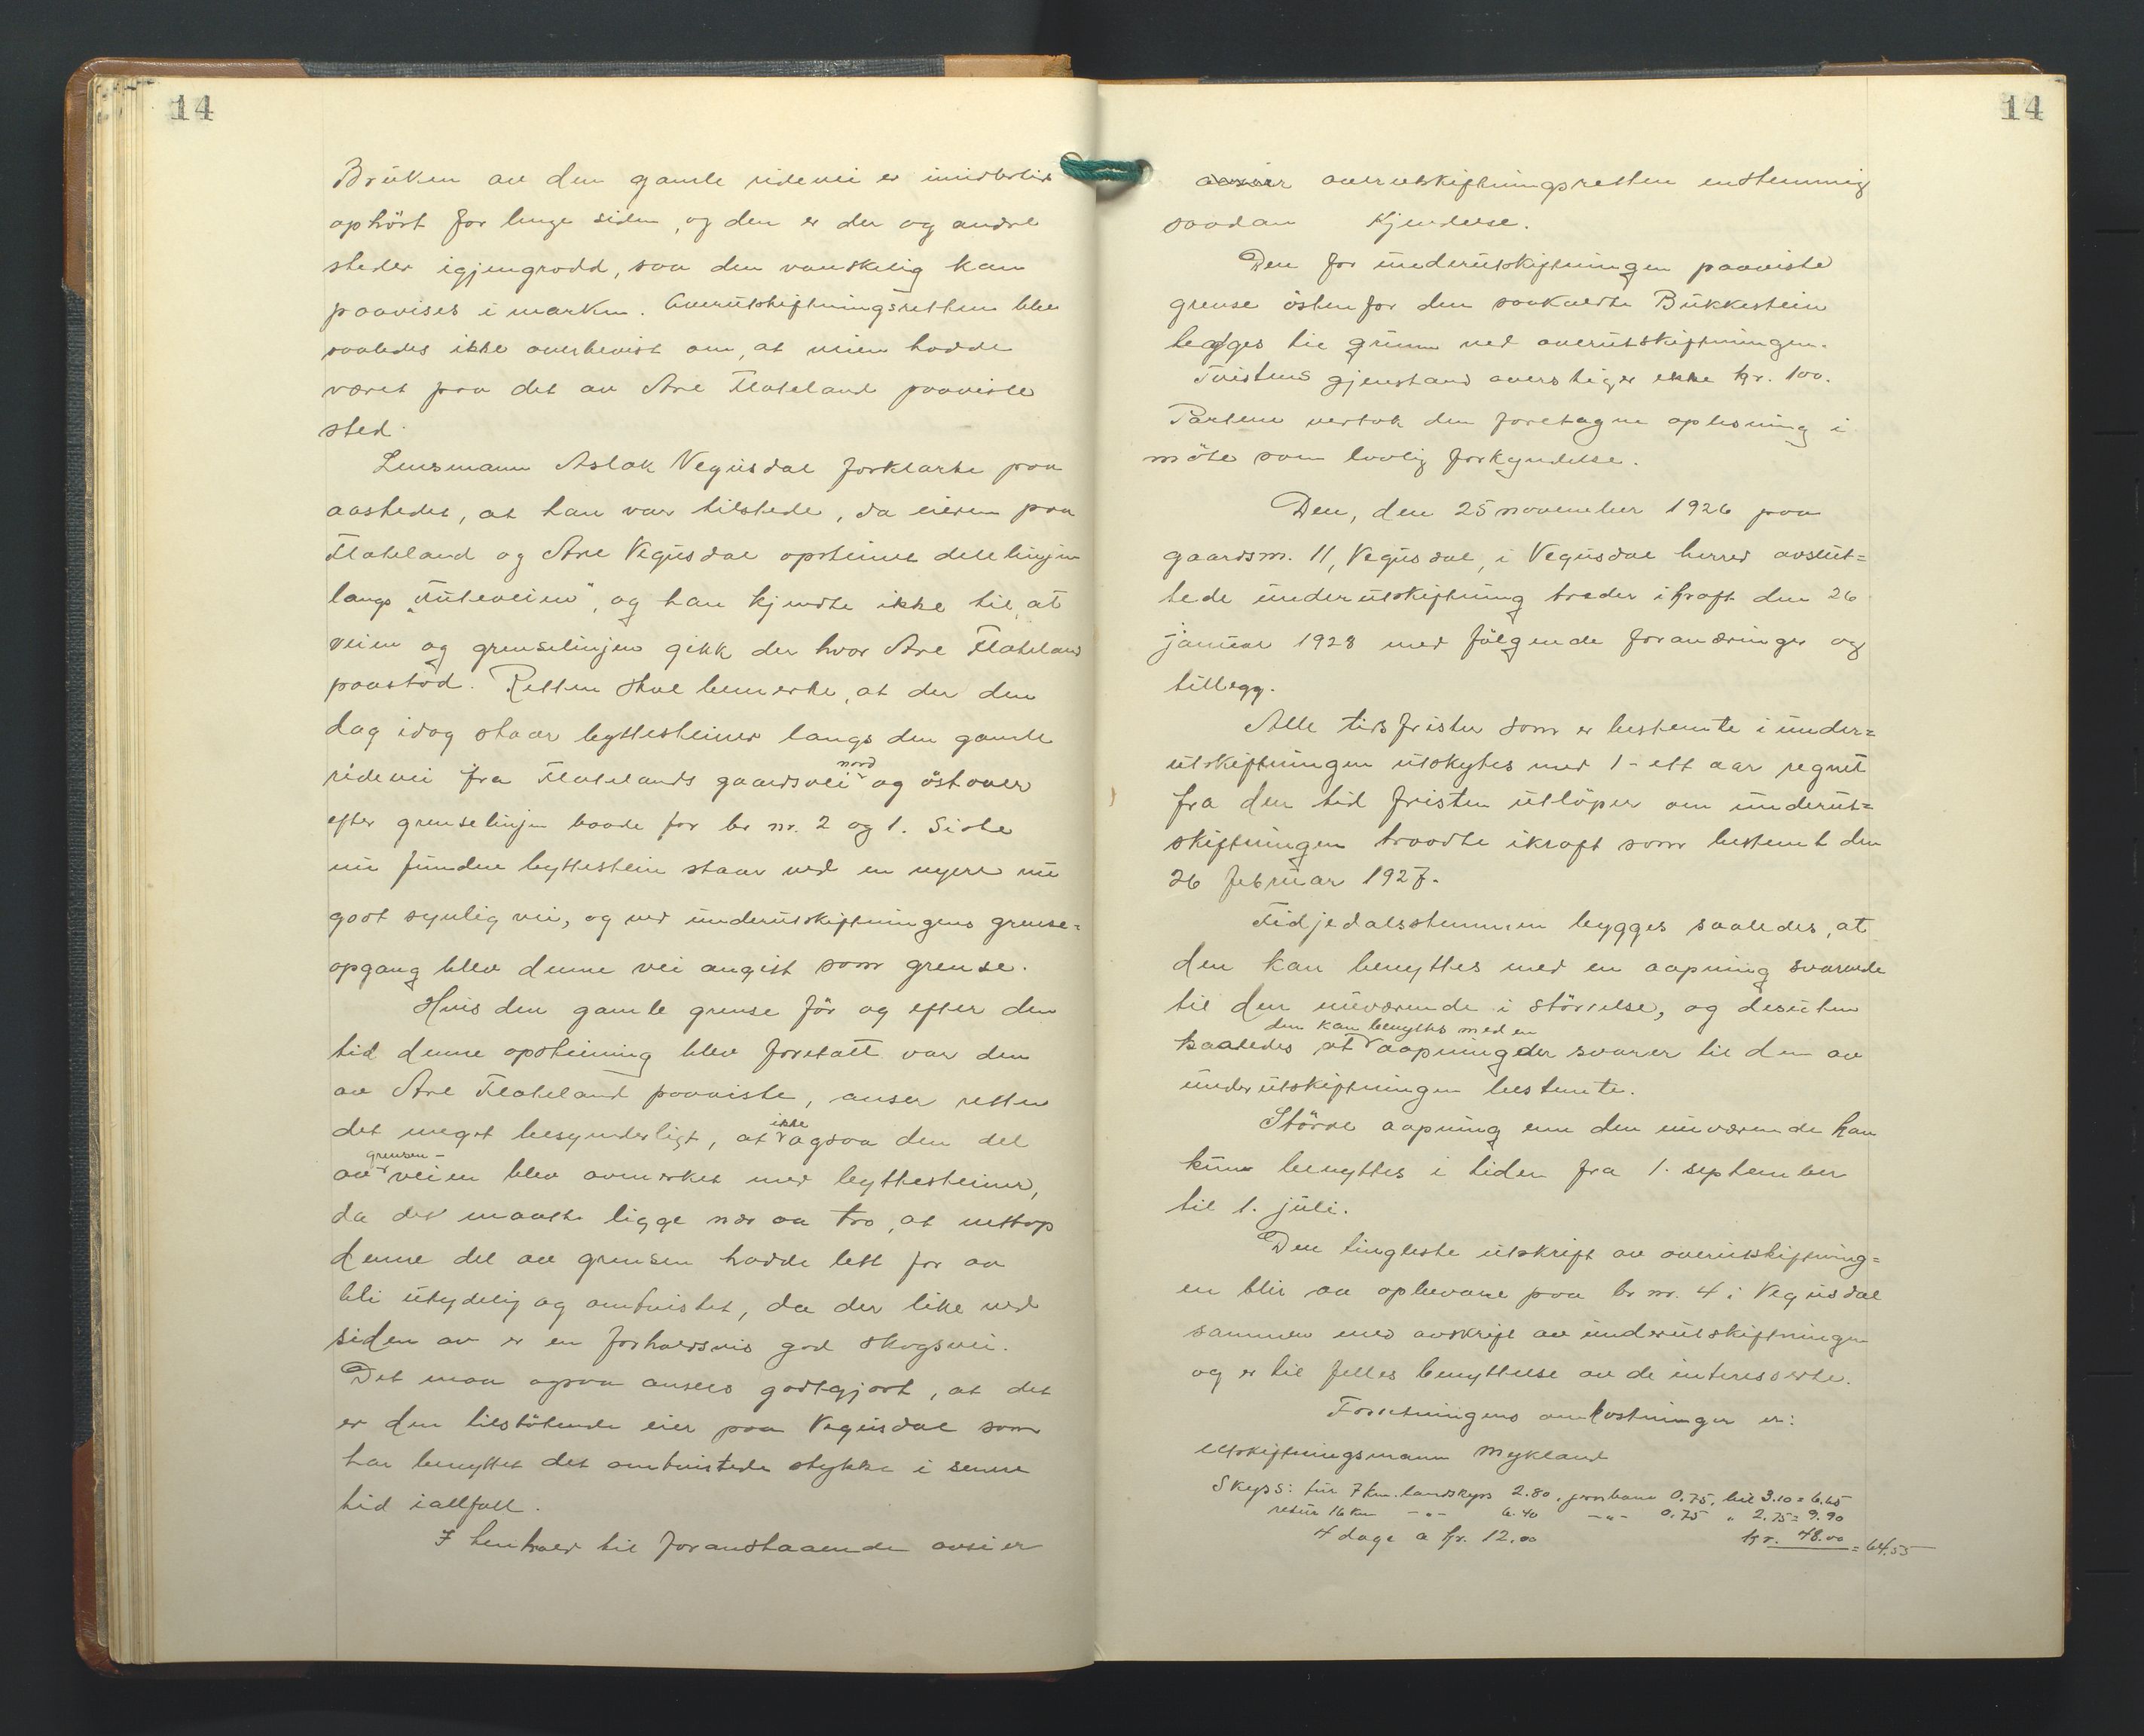 14
Bruken av den gamle ridevei er imidlertid
ophørt for lenge siden, og den er der og andre
steder igjengrodd, saa den vanskelig kan
paavises i marken. Overutskiftningsretten blev
saaledes ikke overbevist om, at veien hadde
været paa det av Are Flateland paaviste
sted.
Lensmann Aslak Vegusdal forklarte paa
aastedet, at han var tilstede, da eieren paa
Flateland og Are Vegusdal opsteinet delelinjen
langs „Tuteveien", og han kjendte ikke til, at
veien og grenselinjen gikk der hvor Are Flateland
paastod. Retten skal bemerke, at der den
dag idag staar byttesteiner langs den gamle
nord
ridevei fra Flatelands gaardsvei og östover
efter grenselinjen baade for br nr. 2 og 1. Siste
nu fundne byttestein staar ved en nyere nu
godt synlig vei, og ved underutskiftningens grense=
opgang blev denne vei angitt som grense.
Hvis den gamle grense för og efter den
tid denne opsteining blev foretatt var den
av Are Flateland paaviste, anser retten
ikke
det meget besynderligt, at ogsaa den del
grensen -
av veien blev avmerket med byttesteiner,
da det maatte ligge nær aa tro, at nettop
denne del av grensen hadde lett for aa
bli utydelig og omtvistet, da der like ved
siden av er en forholdsvis god skogsvei.
Det maa ogsaa ansees godtgjort, at det
er den tilstötende eier paa Vegusdal som
har benyttet det omtvistede stykke i senere
tid iallfall.
I henhold til foranstaaende avsier
14
avsier overutskiftningsretten enstemmig
saadan kjendelse.
Den for underutskiftningen paaviste
grense östenfor den saakaldte Bukkestein
legges til grunn ved overutskiftningen.
Tvistens gjenstand overstiger ikke kr. 100.
Partene vedtok den foretagne oplesning i
möte som lovlig forkyndelse.
Den, den 25 november 1926 paa
gaardsnr. 11, Vegusdal, i Vegusdal herred avslut=
tede underutskiftning træder ikraft den 26
januar 1928 med fölgende forandringer og
tillegg.
Alle tidsfrister som er bestemte i under=
utskiftningen utskytes med 1 - ett aar regnet
fra den tid fristen utlöper om underut=
skiftningen traadte ikraft som bestemt den
26 februar 1927.
Fidjedalsstemmen bygges saaledes, at
den kan benyttes med en aapning svarende
til den nuværende i störrelse, og desuten
den kan benyttes med en
saaledes at aapning der svarer til den av
underutskiftningen bestemte.
Större aapning enn den nuværende kan
kun benyttes i tiden fra 1. september
til 1. juli.
Den tingleste utskrift av overutskiftning=
en blir aa opbevare paa br nr. 4 i Vegusdal
sammen med avskrift av underutskiftningen
og er til felles benyttelse av de interesserte.
Forretningens omkostninger er:
utskiftningsmann Mykland
Skyss: tur 7 km. landskyss 2.80, jernbane 0.75, bil 3.10 = 6.65
retur 16 km -"- 6.40 -"- 0.75 " 2.75 = 9.90
4 dage a kr. 12.00 kr. 48.00 = 64.55